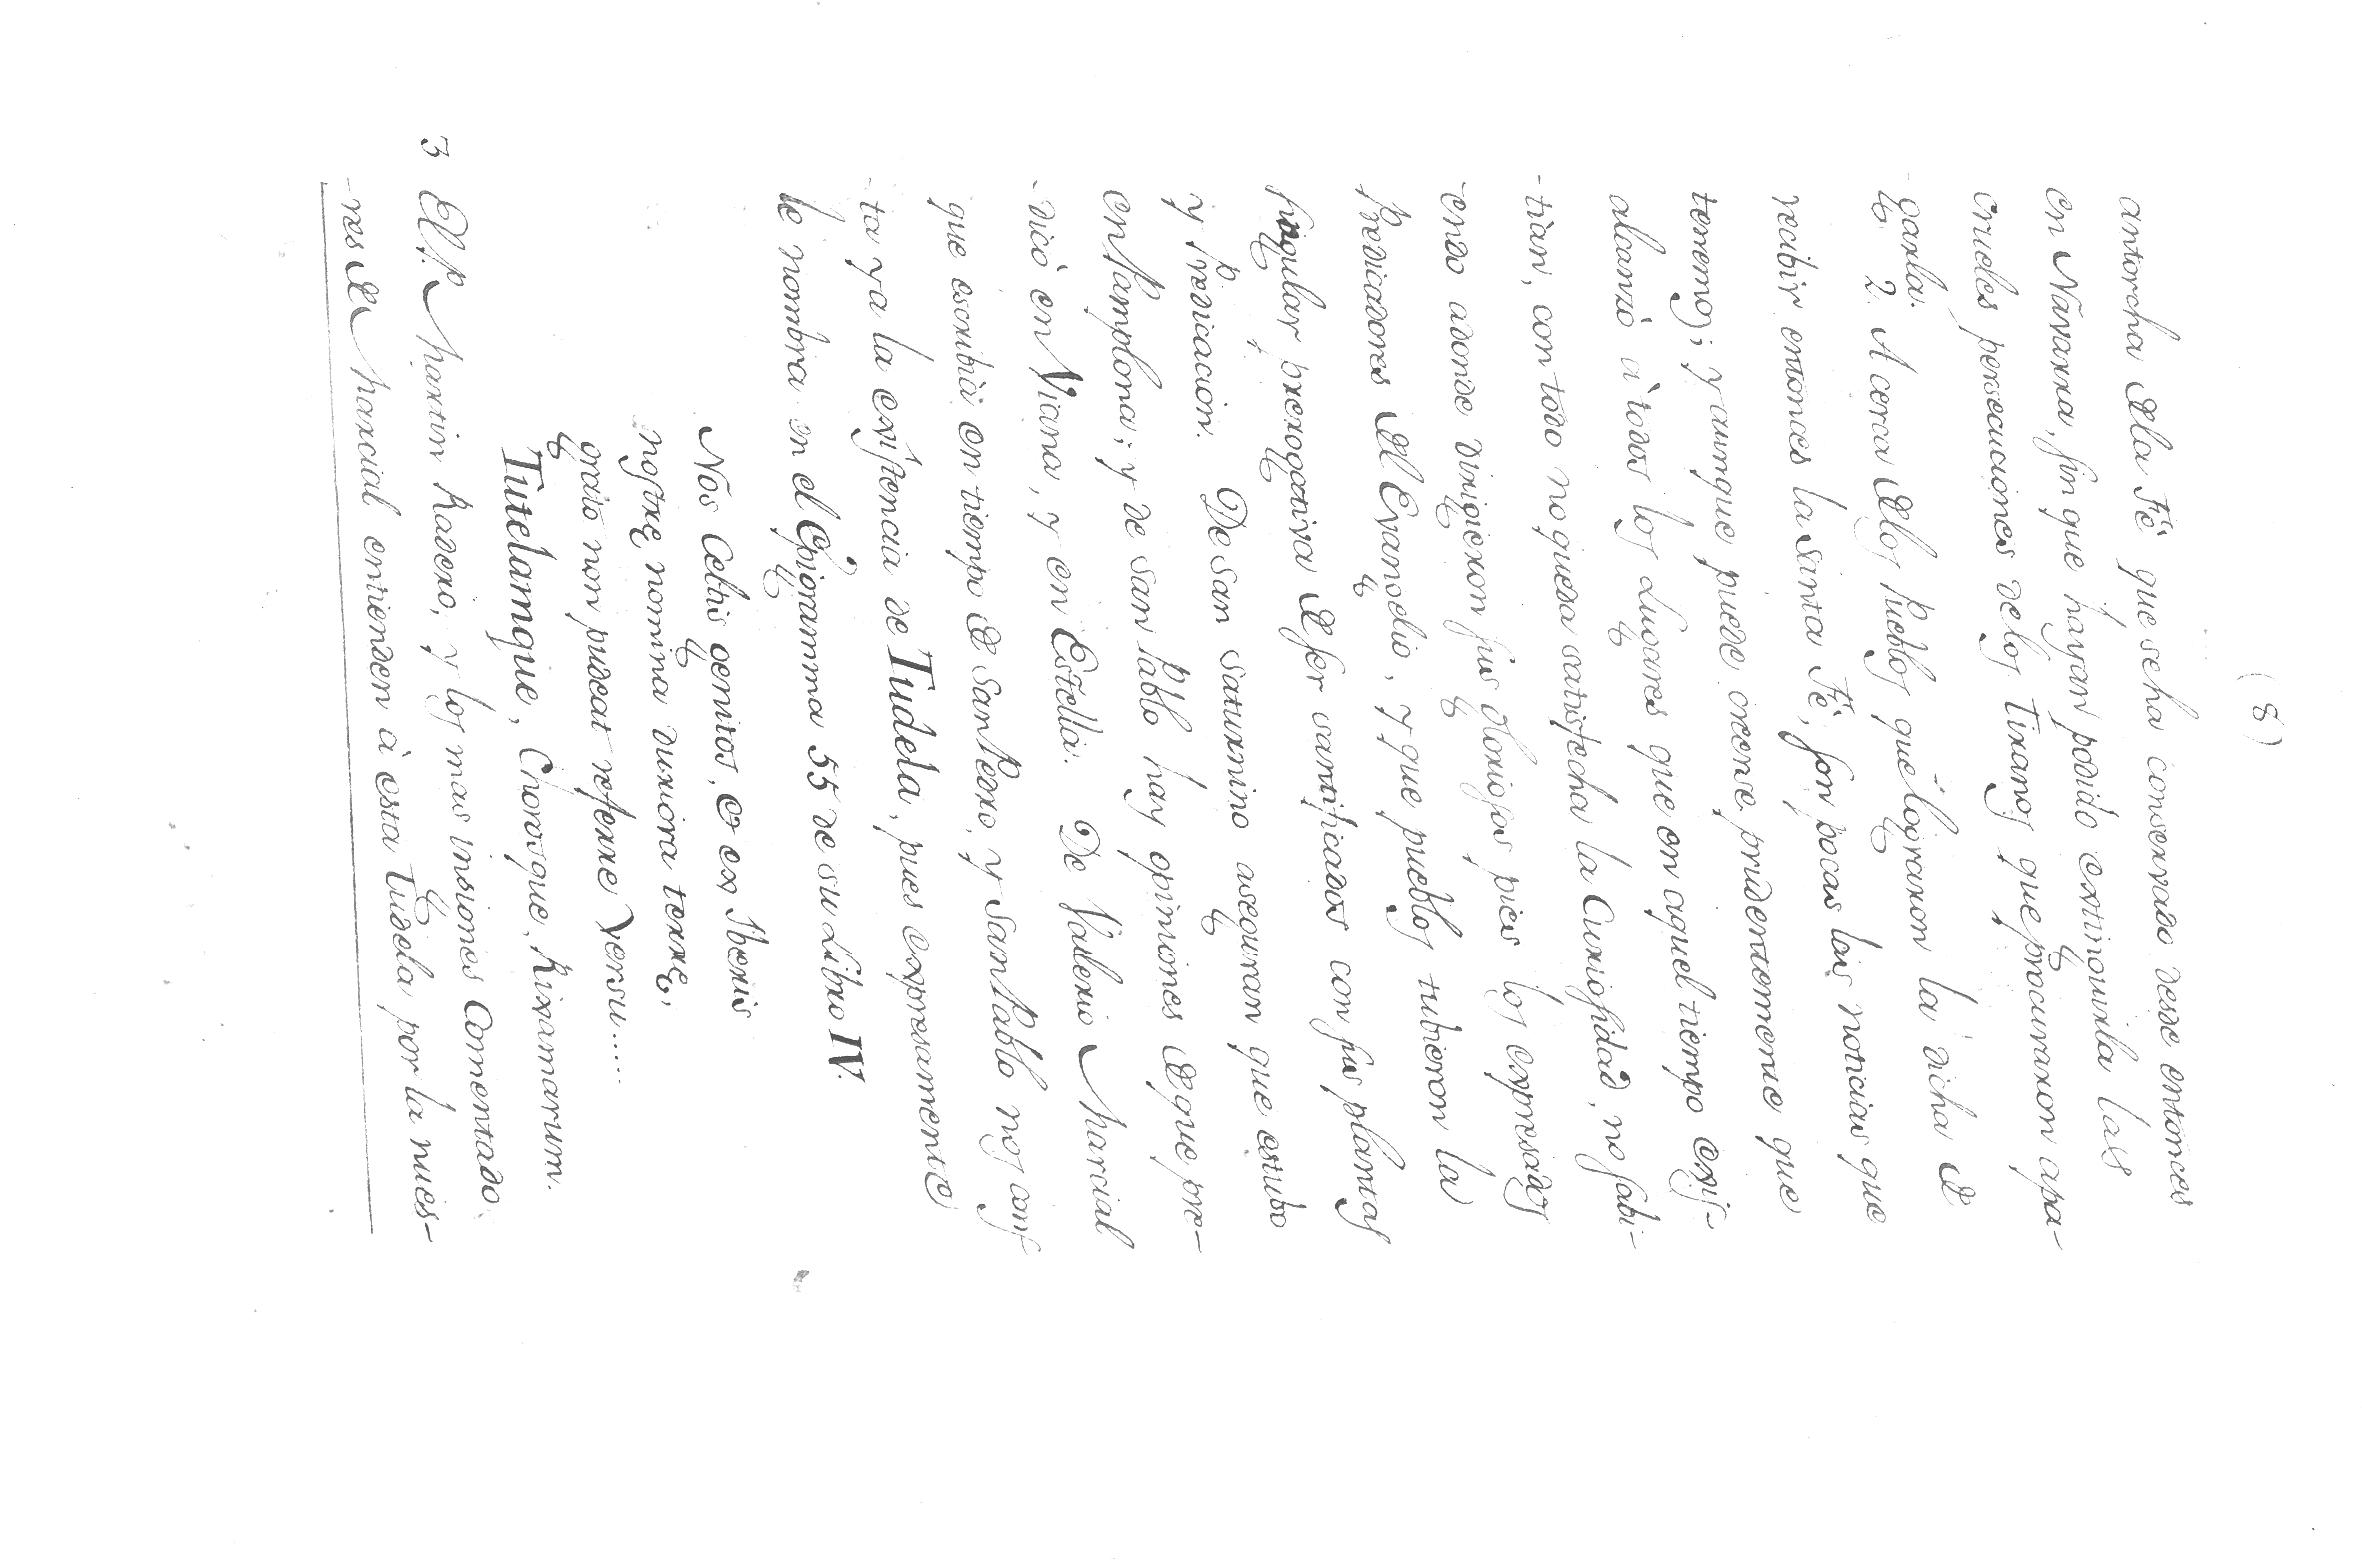 (8)
antorcha de la Fè que se ha conservado desde entonces
en Navarra, sin que hayan podido extinguirla las
crueles persecuciones de los Tiranos que procuraron apa-
-garla.
2. Acerca de los Pueblos que lograron la dicha de
recibir entonces la santa Fè, son pocas las noticias que
tenemos; y aunque puede creerse prudentemente que
alcanzò à todos los Lugares que en aquel tiempo exis-
-tian, con todo no queda satisfecha la Curiosidad, no sabi-
-endo adonde dirigieron sus gloriosos pies los expresados
Predicadores del Evangelio, y que pueblos tubieron la
singular prerogativa de ser santificados con sus plantas
y Predicacion. De San Saturnino aseguran que estubo
en Pamplona; y de San Pablo hay opiniones de que pre-
-dicò en Viana, y en Estella. De Valerio Marcial
que escribia en tiempo de San Pedro, y San Pablo nos cons
-ta ya la existencia de Tudela, pues expresamente
le nombra en el Epigramma 55 de su Libro IV.
Nos Celtis genitos, et ex Iberis
nostrę nomina duriora terrę,
grato non pudeat referre Versu......
Tutelamque, Chorosque Rixamarum.
3 El P. Martin Radero, y los mas insignes Comentado
-res de Marcial entienden à esta Tudela por la mies-